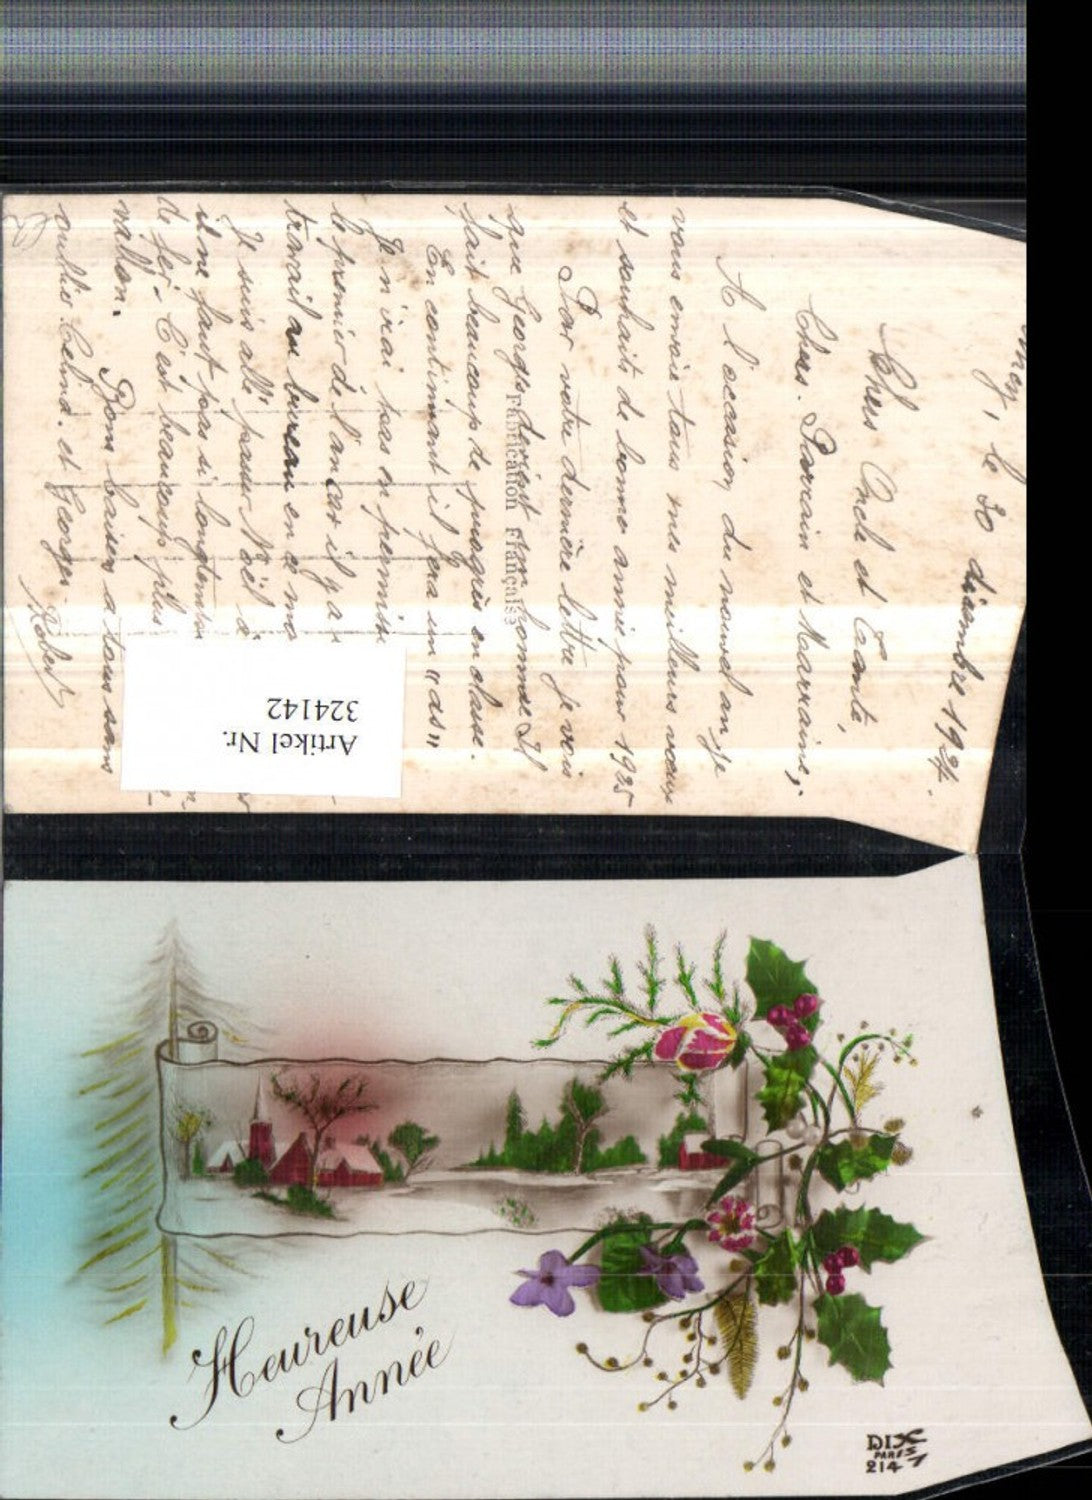 le 30 décembre 1924.
Chers Oncle et Tante,
Chers Parrain et Marraine,
A l'occasion du nouvel an je
vous envoie tous mes meilleurs vœux
et souhaits de bonne année pour 1925
Par votre dernière lettre je vois
que Georges devient un homme Il
fait beaucoup de progrès en classe.
En continuant il fera un "as"
Je n'irai pas en permission
le premier de l'an car il y a
travail au bureau en ce mo
Je suis allé passer Noël à
il ne faut pas si longtemps
de fer. C'est beaucoup plus
Bons baisers à tous sans
oublier Celina et Georges.
Robert
Fabrication Française
Artikel Nr.
324142
Heureuse
Année
DIX
PARIS
214